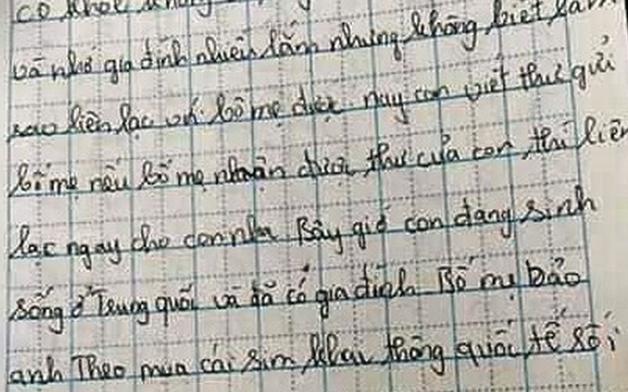 có khoẻ không
và nhớ gia đình nhiều lắm nhưng không biết làm
sao liên lạc với bố mẹ được nay con viết thư gửi
bố mẹ nếu bố mẹ nhận được thư của con thì liên
lạc ngay cho con nha Bây giờ con đang sinh
sống ở Trung quốc và đã có gia đình Bố mẹ bảo
anh Theo mua cái sim khai thông quốc tế rồi